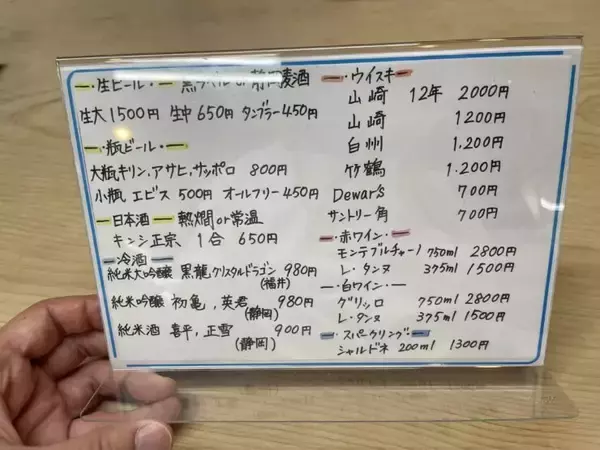 生ビール 黒ラベル or 静岡麦酒
生大1500円 生中650円 タンブラー450円
瓶ビール
大瓶キリン,アサヒ,サッポロ 800円
小瓶 エビス 500円 オールフリー450円
日本酒 熱燗or常温
キンシ正宗 1合 650円
冷酒
純米大吟醸 黒龍,クリスタルドラゴン 980円
(福井)
純米吟醸 初亀,英君 980円
(静岡)
純米酒 喜平,正雪 900円
(静岡)
ウイスキー
山崎 12年 2000円
山崎 1200円
白州 1.200円
竹鶴 1.200円
Dewar's 700円
サントリー角 700円
赤ワイン
モンテプルチャーノ 750ml 2800円
レ・タンヌ 375ml 1500円
白ワイン
グリッロ 750ml 2800円
レ・タンヌ 375ml 1500円
スパークリング
シャルドネ 200ml 1300円